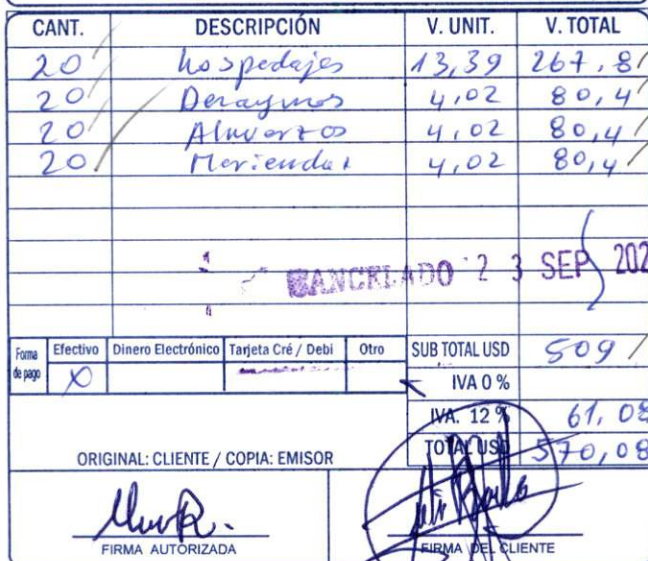 CANT. DESCRIPCIÓN V. UNIT. V. TOTAL
20 hospedajes 13,39 267,8
20 Desayunos 4,02 80,4
20 Almuerzos 4,02 80,4
20 Meriendas 4,02 80,4
CANCELADO 23 SEP 202
Forma de pago Efectivo Dinero Electrónico Tarjeta Cré / Debi Otro SUB TOTAL USD 509
X
IVA 0 %
IVA. 12 % 61,08
TOTAL USD 570,08
ORIGINAL: CLIENTE / COPIA: EMISOR
FIRMA AUTORIZADA FIRMA DEL CLIENTE